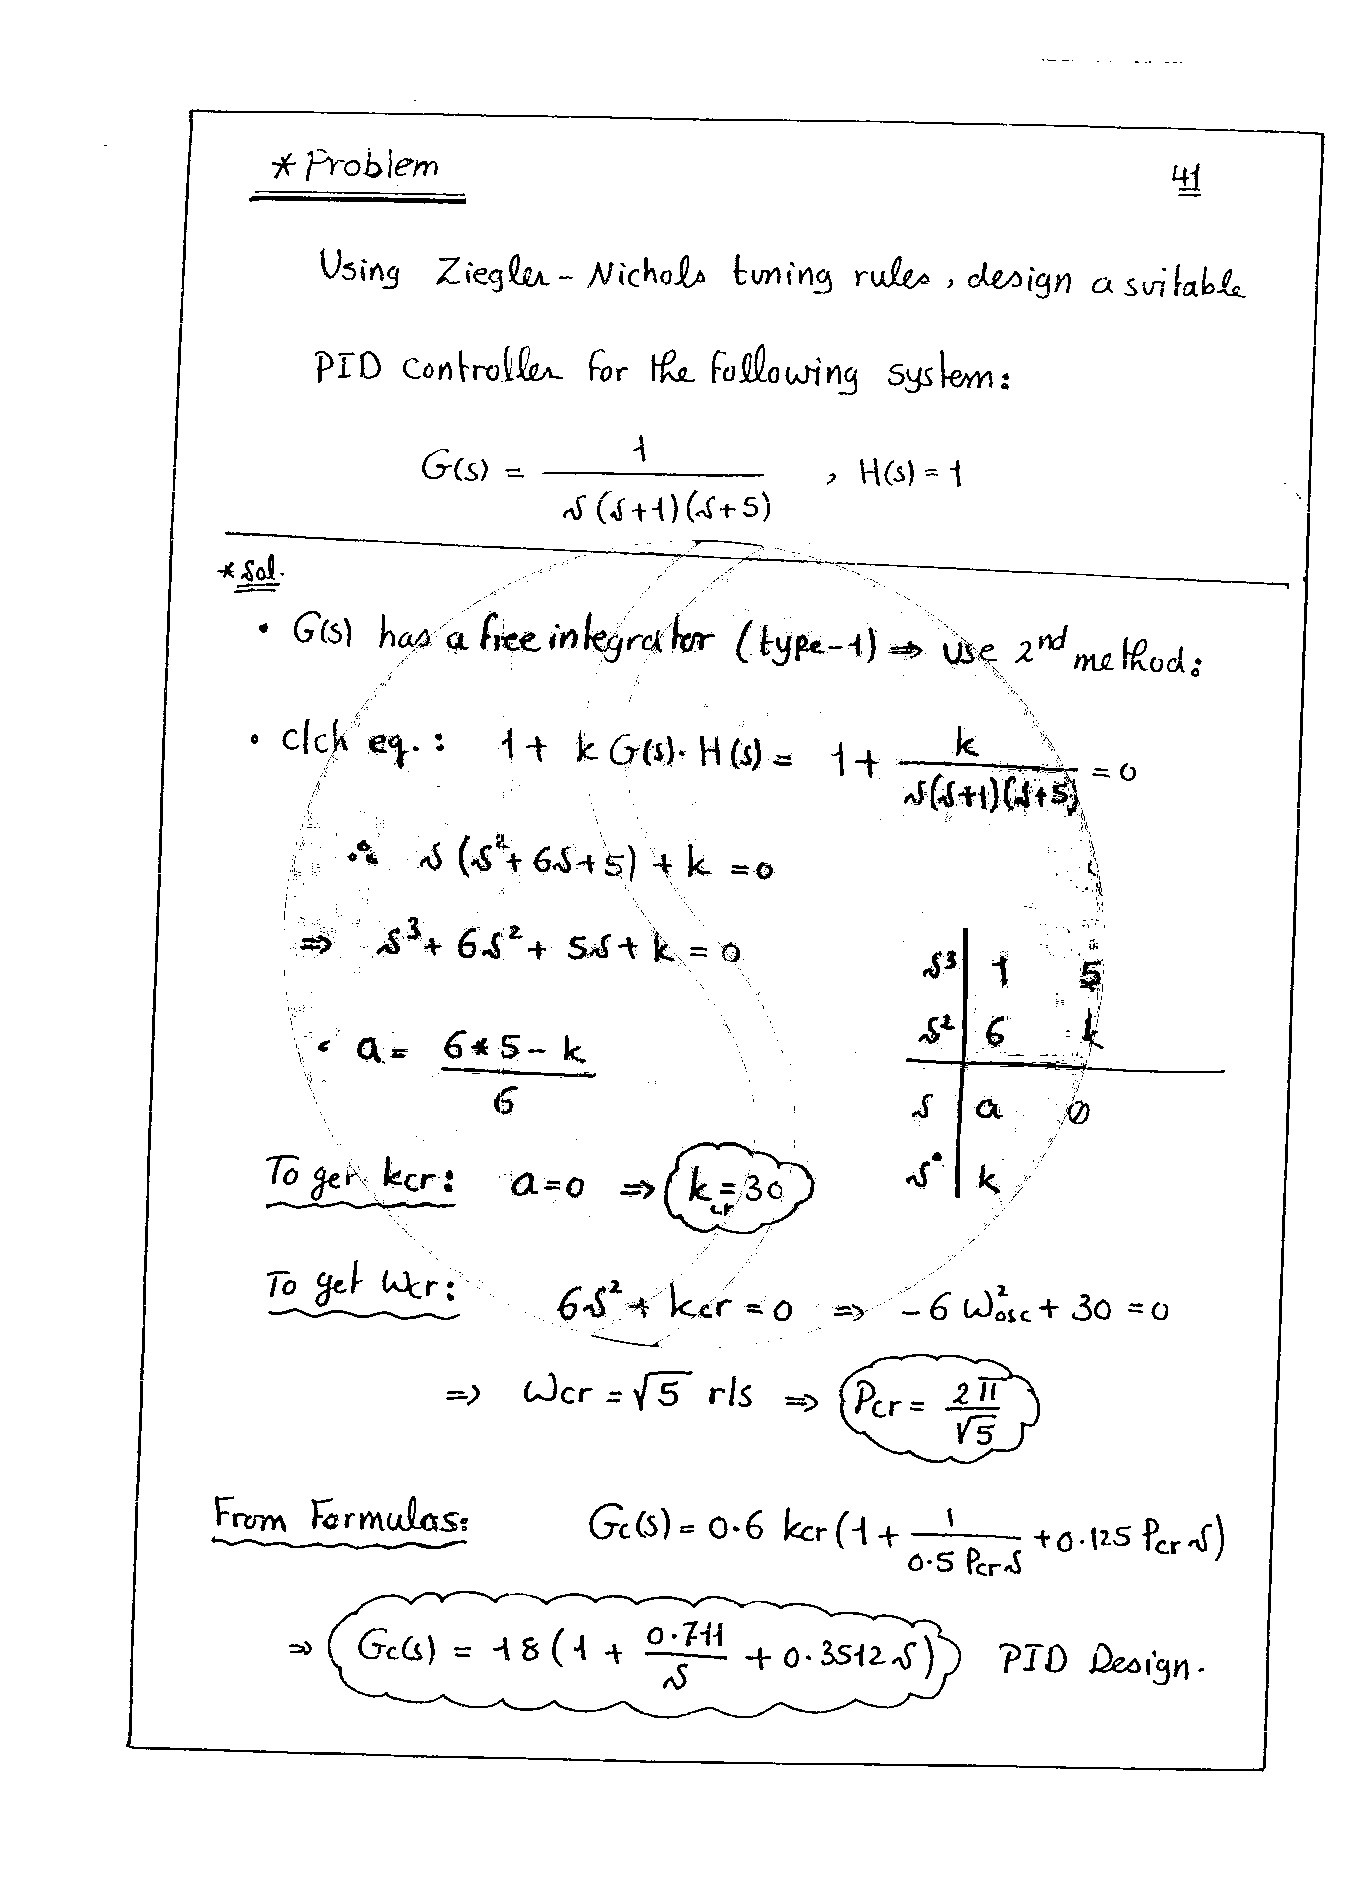 * Problem
41
Using Ziegler - Nichols tuning rules, design a suitable
PID controller for the following system:
G(s) = 1 / s(s+1)(s+5) , H(s) = 1
* Sol.
• G(s) has a free integrator (type-1) ⇒ use 2nd method:
• c/ch eq. : 1 + k G(s)· H(s) = 1 + k / s(s+1)(s+5) = 0
∴ s(s²+6s+5) + k = 0
⇒ s³ + 6s² + 5s + k = 0
s³ | 1 5
s² | 6 k
s | a 0
s° | k
• a = 6*5 - k / 6
To get kcr: a=0 ⇒ kcr = 30
To get Wcr: 6s² + kcr = 0 ⇒ -6 ω²osc + 30 = 0
⇒ ωcr = √5 r/s ⇒ Pcr = 2π / √5
From Formulas: Gc(s) = 0.6 kcr (1 + 1 / 0.5 Pcr s + 0.125 Pcr s)
⇒ Gc(s) = 18 (1 + 0.711 / s + 0.3512 s) PID Design.